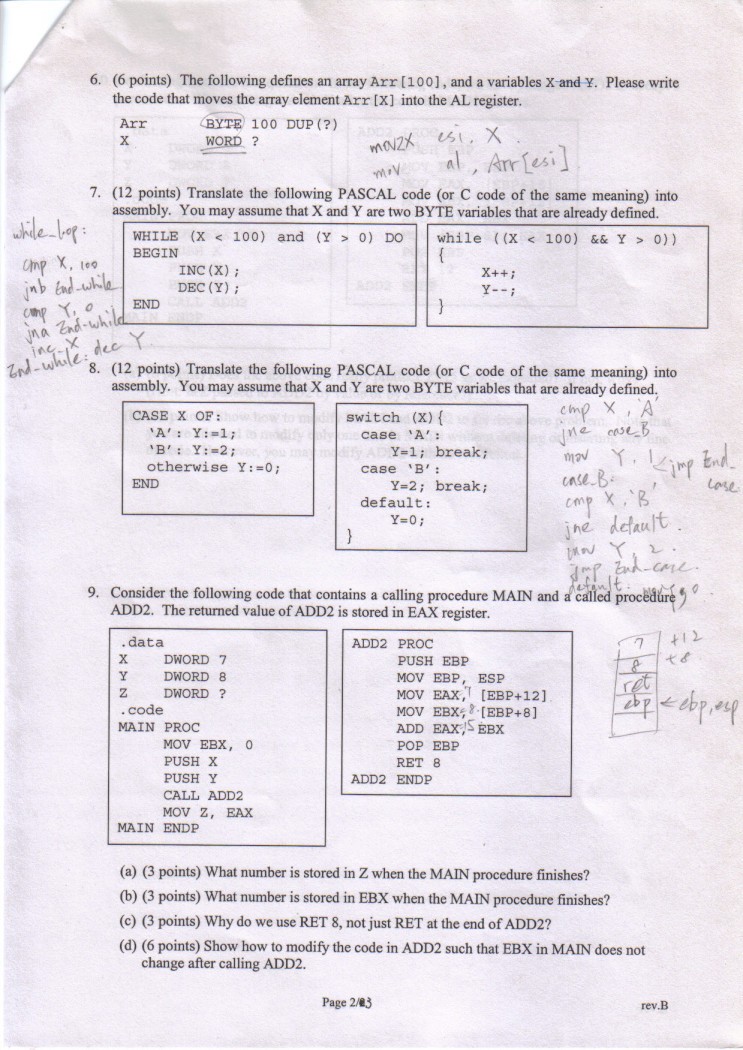 6. (6 points) The following defines an array Arr[100], and a variables X and Y. Please write
the code that moves the array element Arr[X] into the AL register.
Arr BYTE 100 DUP(?)
X WORD ?
movzx esi, X
mov al, Arr[esi]
7. (12 points) Translate the following PASCAL code (or C code of the same meaning) into
assembly. You may assume that X and Y are two BYTE variables that are already defined.
while_loop:
cmp X, 100
jnb End_while
cmp Y, 0
jna End_while
inc X
dec Y
End_while:
WHILE (X < 100) and (Y > 0) DO
BEGIN
INC(X);
DEC(Y);
END
while ((X < 100) && Y > 0))
{
X++;
Y--;
}
8. (12 points) Translate the following PASCAL code (or C code of the same meaning) into
assembly. You may assume that X and Y are two BYTE variables that are already defined.
CASE X OF:
'A': Y:=1;
'B': Y:=2;
otherwise Y:=0;
END
switch (X){
case 'A':
Y=1; break;
case 'B':
Y=2; break;
default:
Y=0;
}
cmp X, 'A'
jne case_B
mov Y, 1
jmp End_case
case_B:
cmp X, 'B'
jne default.
mov Y, 2.
jmp End_case.
default: mov y 0
9. Consider the following code that contains a calling procedure MAIN and a called procedure
ADD2. The returned value of ADD2 is stored in EAX register.
.data
X DWORD 7
Y DWORD 8
Z DWORD ?
.code
MAIN PROC
MOV EBX, 0
PUSH X
PUSH Y
CALL ADD2
MOV Z, EAX
MAIN ENDP
ADD2 PROC
PUSH EBP
MOV EBP, ESP
MOV EAX, 7 [EBP+12]
MOV EBX, 8 [EBP+8]
ADD EAX, 15 EBX
POP EBP
RET 8
ADD2 ENDP
7 +12
8 +8
ret
ebp ← ebp, esp
(a) (3 points) What number is stored in Z when the MAIN procedure finishes?
(b) (3 points) What number is stored in EBX when the MAIN procedure finishes?
(c) (3 points) Why do we use RET 8, not just RET at the end of ADD2?
(d) (6 points) Show how to modify the code in ADD2 such that EBX in MAIN does not
change after calling ADD2.
Page 2/3
rev.B